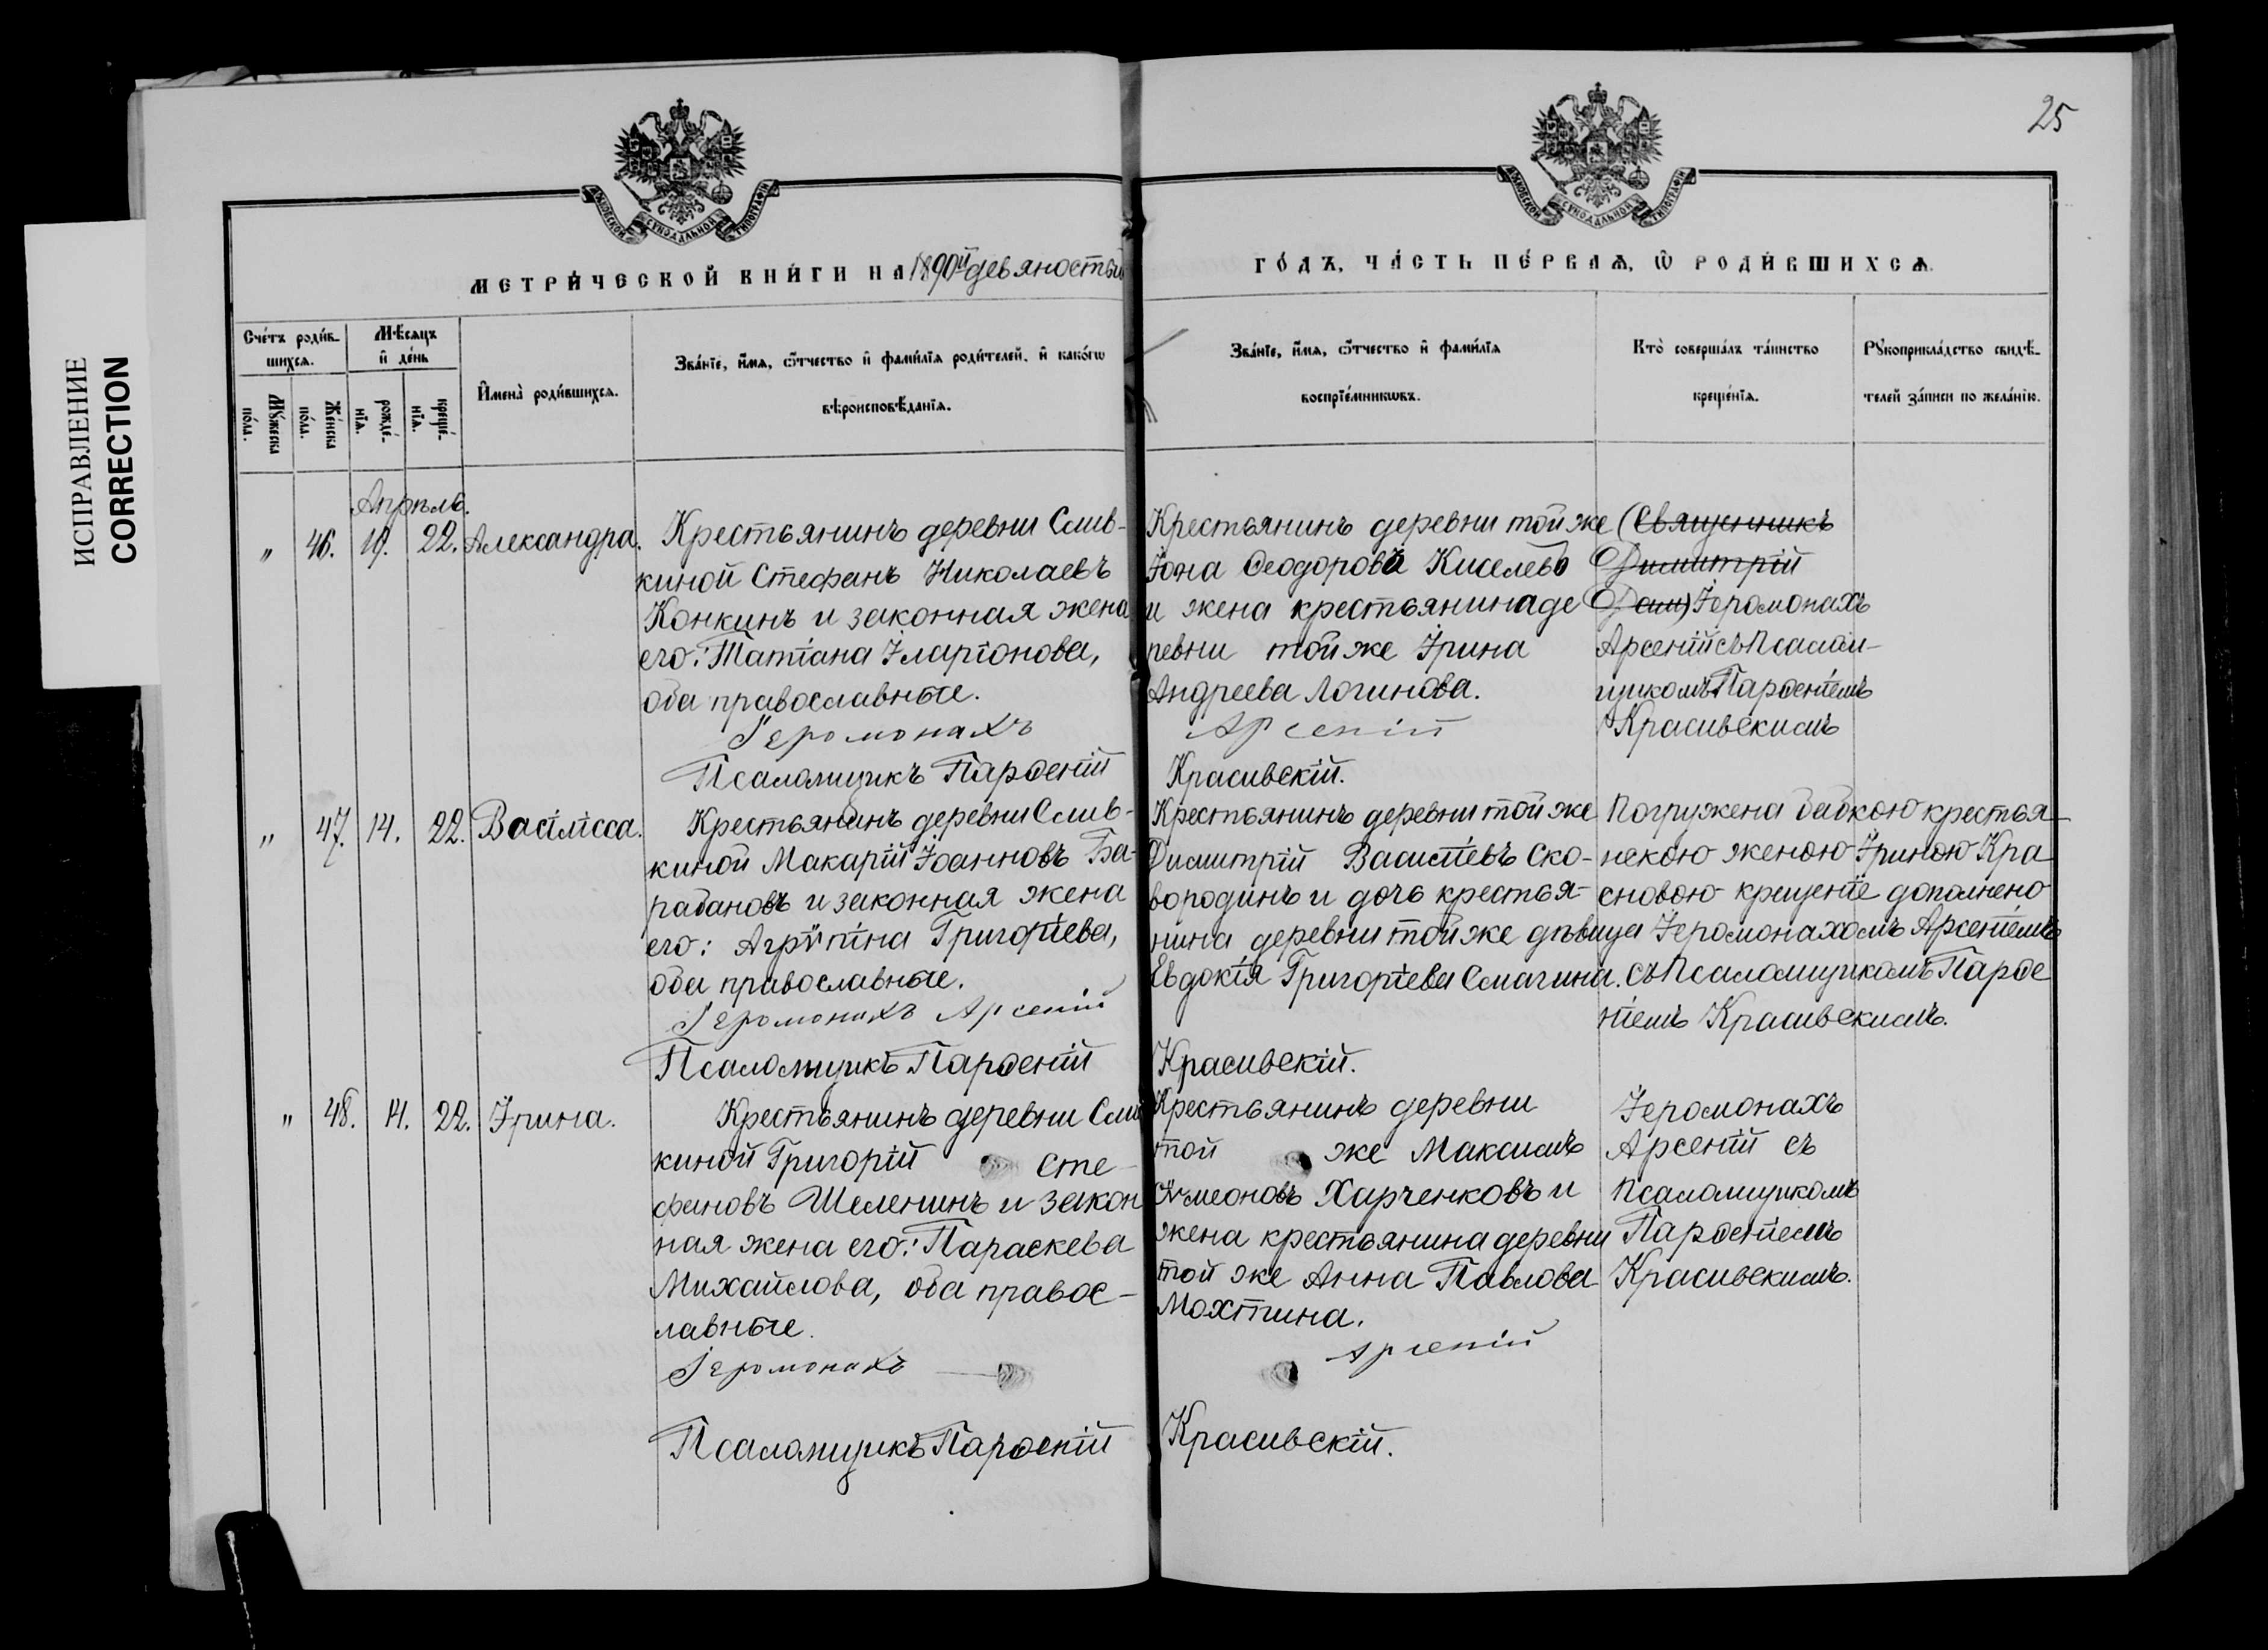 25
ИСПРАВЛЕНИЕ
CORRECTION
МОСКОВСКОЙ СУНОДАЛЬНОЙ ТИПОГРАФІИ
МОСКОВСКОЙ СУНОДАЛЬНОЙ ТИПОГРАФІИ
МЕТРИ́ЧЕСКОЙ КНИ́ГИ НА 1890й девяностый
ГО́ДЪ, ЧА́СТЬ ПЕ́РВАѦ, Ѡ РОДИ́ВШИХСѦ.
Сче́тъ роди́в-
шихсѧ.
Мꙋ́жеска
по́ла.
Же́нска
по́ла.
Мѣ́сѧцъ
и҆ де́нь
рожде́-
нїѧ.
креще́-
нїѧ.
И҆мена̀ роди́вшихсѧ.
Зва́нїе, и҆́мѧ, ѻ҆́тчество и҆ фами́лїѧ роди́телей, и҆ како́гѡ
вѣроисповѣ́данїѧ.
Зва́нїе, и҆́мѧ, ѻ҆́тчество и҆ фами́лїѧ
воспрїе́мникѡвъ.
Кто̀ соверша́лъ та́инство
креще́нїѧ.
Рꙋкоприкла́дство свидѣ́-
телей за́писи по жела́нїю.
Апрѣль.
" 46. 19. 22. Александра.
Крестьянинъ деревни Слив-
киной Стефанъ Николаевъ
Конкинъ и законная жена
его: Татіана Іларіонова,
оба православные.
Іеромонахъ
Псаломщикъ Парѳеній
Крестьянинъ деревни той же
Іона Ѳеодоровъ Киселевъ
и жена крестьянина де
ревни той же Ірина
Андреева Логинова.
Арсеній
Красивскій.
(Священникъ
Димитрій
Іеромонахъ
Арсеній съ Псалом-
щикомъ Парѳеніемъ
Красивскимъ
" 47. 14. 22. Васілісса.
Крестьянинъ деревни Слив-
киной Макарій Іоанновъ Ба-
рабановъ и законная жена
его: Агрѵпіна Григоріева,
оба православные.
Іеромонахъ Арсеній
Псаломщикъ Парѳеній
Крестьянинъ деревни той же
Димитрій Василіевъ Ско-
вородинъ и дочь крестья-
нина деревни той же дѣвица
Евдокія Григоріева Смагина.
Красивскій.
Погружена бабкою крестья-
нскою женою Іриною Кра
сновою крещеніе дополнено
Іеромонахомъ Арсеніемъ
съ Псаломщикомъ Парѳе
ніемъ Красивскимъ.
" 48. 14. 22. Ірина.
Крестьянинъ деревни Слив
киной Григорій Сте-
фановъ Шеленинъ и закон
ная жена его: Параскева
Михайлова, оба правос-
лавные.
Іеромонахъ
Псаломщикъ Парѳеній
Крестьянинъ деревни
той же Максимъ
Сѵмеоновъ Харченковъ и
жена крестьянина деревни
той же Анна Павлова
Мохтина.
Арсеній
Красивскій.
Іеромонахъ
Арсеній съ
Псаломщикомъ
Парѳеніемъ
Красивскимъ.